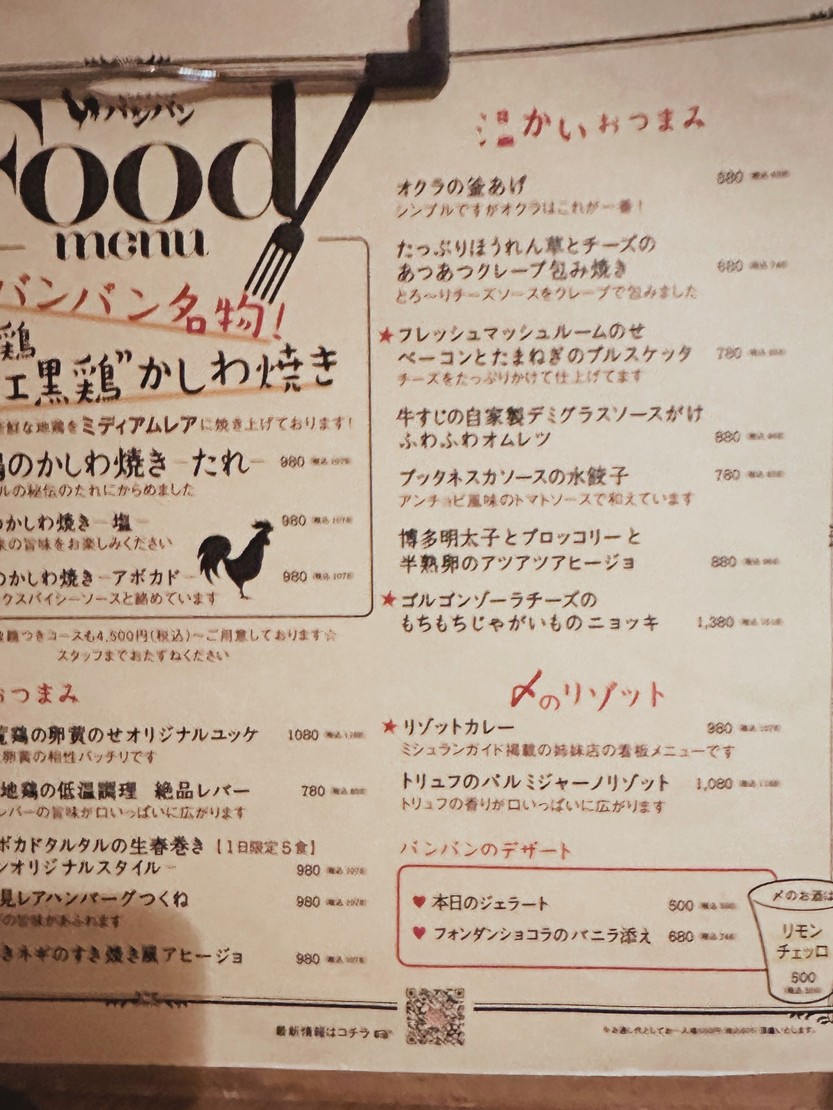 バンバン
Food
menu
バンバン名物!
鶏
黒鶏"かしわ焼き
鮮な地鶏をミディアムレアに焼き上げております!
のかしわ焼き－たれ－ 980 (税込1078)
ルの秘伝のたれにからめました
かしわ焼き－塩－ 980 (税込1078)
の旨味をお楽しみください
のかしわ焼き－アボカド－ 980 (税込1078)
クスパイシーソースと絡めています
鶏つきコースも4,500円(税込)～ご用意しております☆
スタッフまでおたずねください
おつまみ
鶏の卵黄のせオリジナルユッケ 1080
卵黄の相性バッチリです
地鶏の低温調理 絶品レバー 780
レバーの旨味が口いっぱいに広がります
ボカドタルタルの生春巻き【1日限定5食】
ンオリジナルスタイル－ 980 (税込1078)
見レアハンバーグつくね 980 (税込1078)
の旨味があふれます
きネギのすき焼き風アヒージョ 980 (税込1078)
温かいおつまみ
オクラの釜あげ
シンプルですがオクラはこれが一番!
たっぷりほうれん草とチーズの
あつあつクレープ包み焼き 680
とろ～りチーズソースをクレープで包みました
★フレッシュマッシュルームのせ
ベーコンとたまねぎのブルスケッタ 780
チーズをたっぷりかけて仕上げてます
牛すじの自家製デミグラスソースがけ
ふわふわオムレツ 880
プッタネスカソースの水餃子 780
アンチョビ風味のトマトソースで和えています
博多明太子とブロッコリーと
半熟卵のアツアツアヒージョ 880
★ゴルゴンゾーラチーズの
もちもちじゃがいものニョッキ 1,380
〆のリゾット
★リゾットカレー 980 (税込1078)
ミシュランガイド掲載の姉妹店の看板メニューです
トリュフのパルミジャーノリゾット 1,080
トリュフの香りが口いっぱいに広がります
バンバンのデザート
♥本日のジェラート 500
♥フォンダンショコラのバニラ添え 680
〆のお酒は
リモン
チェッロ
500
最新情報はコチラ☞